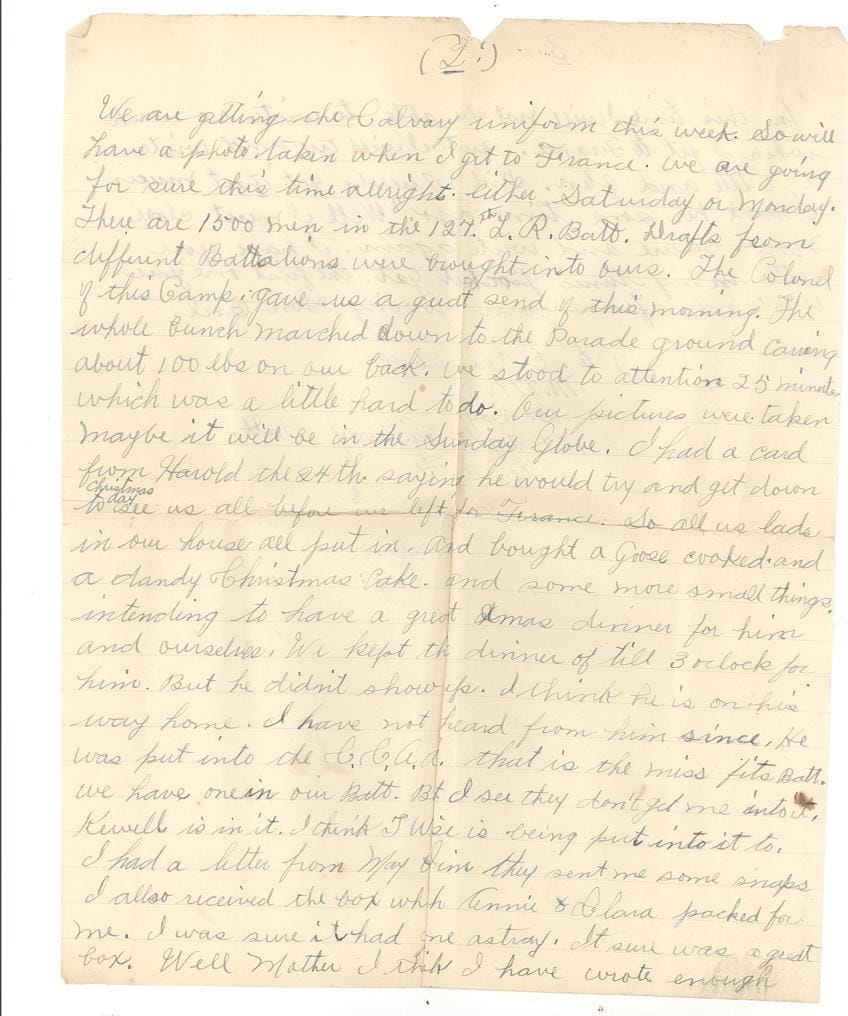 (2.)
We are getting the Calvary uniform this week. So will
have a photo taken when I get to France. we are going
for sure this time allright. either Saturday or Monday.
There are 1500 men in the 127.th L. R. Batt. Drafts from
different Battalions were brought into ours. The Colonel
of this Camp. gave us a great send of this morning. The
whole bunch marched down to the Parade ground carring
about 100 lbs on our back. we stood to attention 25 minute
which was a little hard to do. Our pictures were taken
maybe it will be in the Sunday Globe. I had a card
from Harold the 24th. saying he would try and get down
Christmas day
to see us all before we left for France. So all us lads
in our house all put in. And bought a Goose cooked. and
a dandy Christmas Cake. and some more small things.
intending to have a great Xmas dinner for him
and ourselves. We kept th dinner of till 3 oclock for
him. But he didn't show up. I think he is on his
way home. I have not heard from him since. He
was put into the C.C.A.d. that is the miss fits Batt.
we have one in our Batt. Bt I see they don't get me into it.
Kewell is in it. I think T Wise is being put into it to.
I had a letter from May Jim they sent me some snaps
I allso received the box whh Annie & Clara packed for
me. I was sure it had gone astray. It sure was a great
box. Well Mother I think I have wrote enough